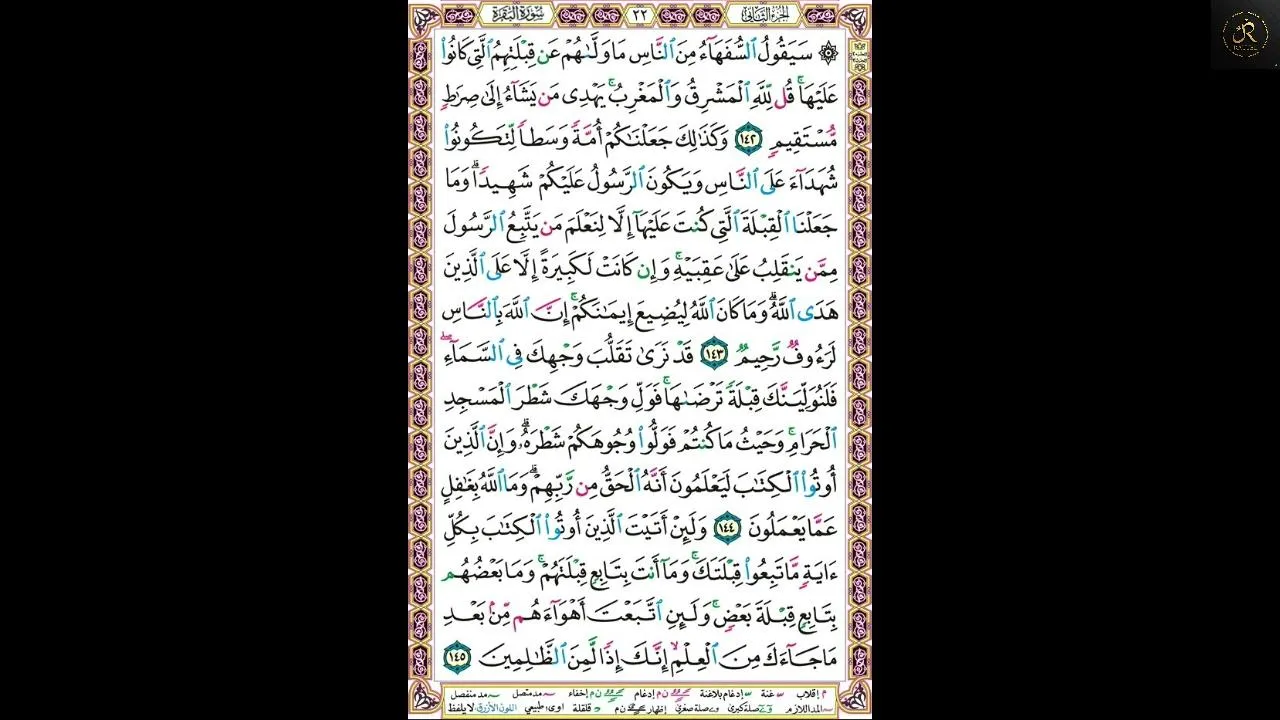 الجزء الثاني
٢٢
سورة البقرة
۞ سَيَقُولُ ٱلسُّفَهَآءُ مِنَ ٱلنَّاسِ مَا وَلَّىٰهُمْ عَن قِبْلَتِهِمُ ٱلَّتِى كَانُوا۟
عَلَيْهَا ۚ قُل لِّلَّهِ ٱلْمَشْرِقُ وَٱلْمَغْرِبُ ۚ يَهْدِى مَن يَشَآءُ إِلَىٰ صِرَٰطٍ
مُّسْتَقِيمٍ ١٤٢ وَكَذَٰلِكَ جَعَلْنَٰكُمْ أُمَّةً وَسَطًا لِّتَكُونُوا۟
شُهَدَآءَ عَلَى ٱلنَّاسِ وَيَكُونَ ٱلرَّسُولُ عَلَيْكُمْ شَهِيدًا ۗ وَمَا
جَعَلْنَا ٱلْقِبْلَةَ ٱلَّتِى كُنتَ عَلَيْهَآ إِلَّا لِنَعْلَمَ مَن يَتَّبِعُ ٱلرَّسُولَ
مِمَّن يَنقَلِبُ عَلَىٰ عَقِبَيْهِ ۚ وَإِن كَانَتْ لَكَبِيرَةً إِلَّا عَلَى ٱلَّذِينَ
هَدَى ٱللَّهُ ۗ وَمَا كَانَ ٱللَّهُ لِيُضِيعَ إِيمَٰنَكُمْ ۚ إِنَّ ٱللَّهَ بِٱلنَّاسِ
لَرَءُوفٌ رَّحِيمٌ ١٤٣ قَدْ نَرَىٰ تَقَلُّبَ وَجْهِكَ فِى ٱلسَّمَآءِ ۖ
فَلَنُوَلِّيَنَّكَ قِبْلَةً تَرْضَىٰهَا ۚ فَوَلِّ وَجْهَكَ شَطْرَ ٱلْمَسْجِدِ
ٱلْحَرَامِ ۚ وَحَيْثُ مَا كُنتُمْ فَوَلُّوا۟ وُجُوهَكُمْ شَطْرَهُۥ ۗ وَإِنَّ ٱلَّذِينَ
أُوتُوا۟ ٱلْكِتَٰبَ لَيَعْلَمُونَ أَنَّهُ ٱلْحَقُّ مِن رَّبِّهِمْ ۗ وَمَا ٱللَّهُ بِغَٰفِلٍ
عَمَّا يَعْمَلُونَ ١٤٤ وَلَئِنْ أَتَيْتَ ٱلَّذِينَ أُوتُوا۟ ٱلْكِتَٰبَ بِكُلِّ
ءَايَةٍ مَّا تَبِعُوا۟ قِبْلَتَكَ ۚ وَمَآ أَنتَ بِتَابِعٍ قِبْلَتَهُمْ ۚ وَمَا بَعْضُهُم
بِتَابِعٍ قِبْلَةَ بَعْضٍ ۚ وَلَئِنِ ٱتَّبَعْتَ أَهْوَآءَهُم مِّنۢ بَعْدِ
مَا جَآءَكَ مِنَ ٱلْعِلْمِ ۙ إِنَّكَ إِذًا لَّمِنَ ٱلظَّٰلِمِينَ ١٤٥
م إقلاب غنة إدغام بلاغنة ن م إدغام ن م إخفاء مد متصل مد منفصل
المد اللازم صلة كبرى صلة صغرى إظهار ن م قلقلة اوى: طبيعي اللون الأزرق لا يلفظ